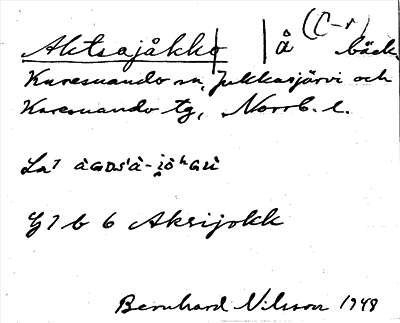 Aktsajåkka | å (C-r) bäck
Karesuando sn, Jukkasjärvi och
Karesuando tg, Norrb. l.
La7
G7 b 6 Aksijokk
Bernhard Nilsson 1948